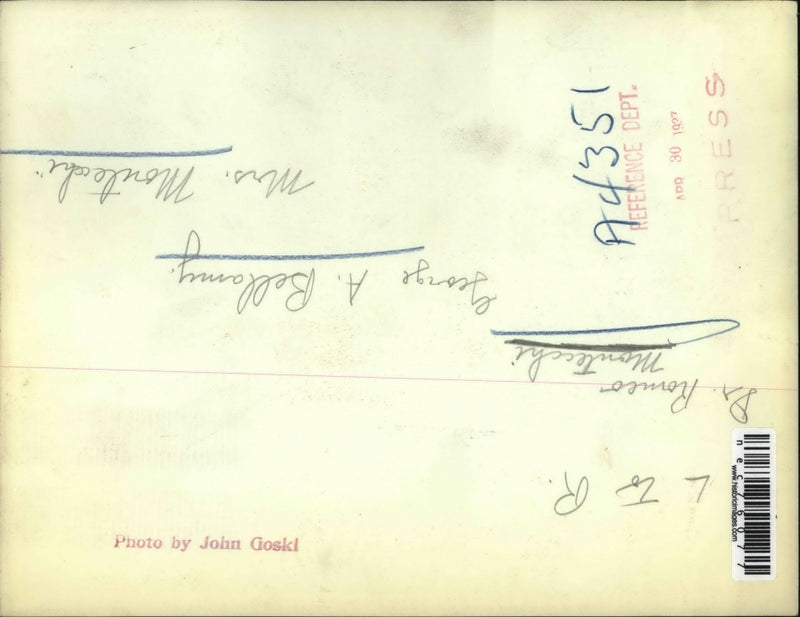 L to R.
Dr. Romeo
Montecchi
George A. Bellamy.
Mrs. Montecchi
A4351
REFERENCE DEPT.
APR 30 1937
PRESS
Photo by John Goski
www.historicimages.com